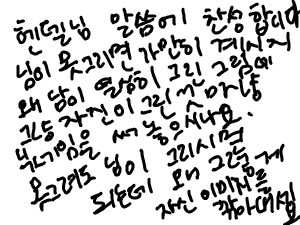 헨델님 말씀에 찬성합니다
님이 못그리면 가만히 계시지
왜 남이 열심히 그린 그림에
그냥 자신이 그린
붙임을 써 놓으시나요.
못그려도 님이 그리시면
되는데 왜 그렇게
자신 이미지를
깎아내려요